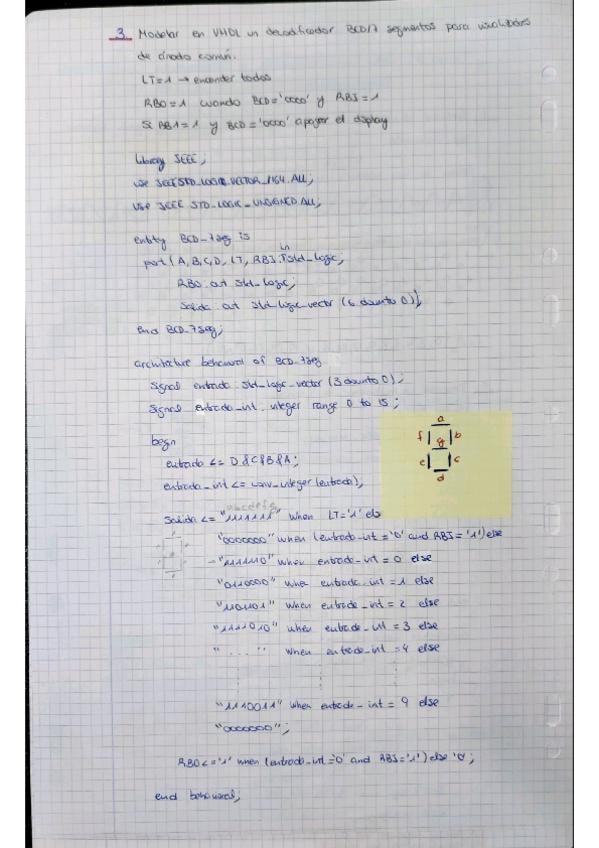 3. Modelar en VHDL un decodificador BCD/7 segmentos para visualizadores
de cátodo común.
LT=1 → encender todos
RBO=1 cuando BCD='0000' y RBI=1
Si RBI=1 y BCD='0000' apagar el display
library IEEE;
use IEEE.STD_LOGIC_VECTOR_1164.ALL;
use IEEE.STD_LOGIC_UNSIGNED.ALL;
entity BCD_7seg is
port (A,B,C,D, LT, RBI: in std_logic;
RBO: out std_logic;
salida: out std_logic_vector (6 downto 0));
end BCD_7seg;
architecture behavioral of BCD_7seg
signal entrada: std_logic_vector (3 downto 0);
signal entrada_int: integer range 0 to 15;
a
f g b
e c
d
begin
entrada <= D&C&B&A;
entrada_int <= conv_integer(entrada);
abcdefg
salida <= "1111111" when LT='1' else
"0000000" when (entrada_int='0' and RBI='1') else
"1111110" when entrada_int = 0 else
"0110000" when entrada_int = 1 else
"1101101" when entrada_int = 2 else
"1111010" when entrada_int = 3 else
" ..... " when entrada_int = 4 else
"1110011" when entrada_int = 9 else
"0000000";
RBO <= '1' when (entrada_int='0' and RBI='1') else '0';
end behavioral;